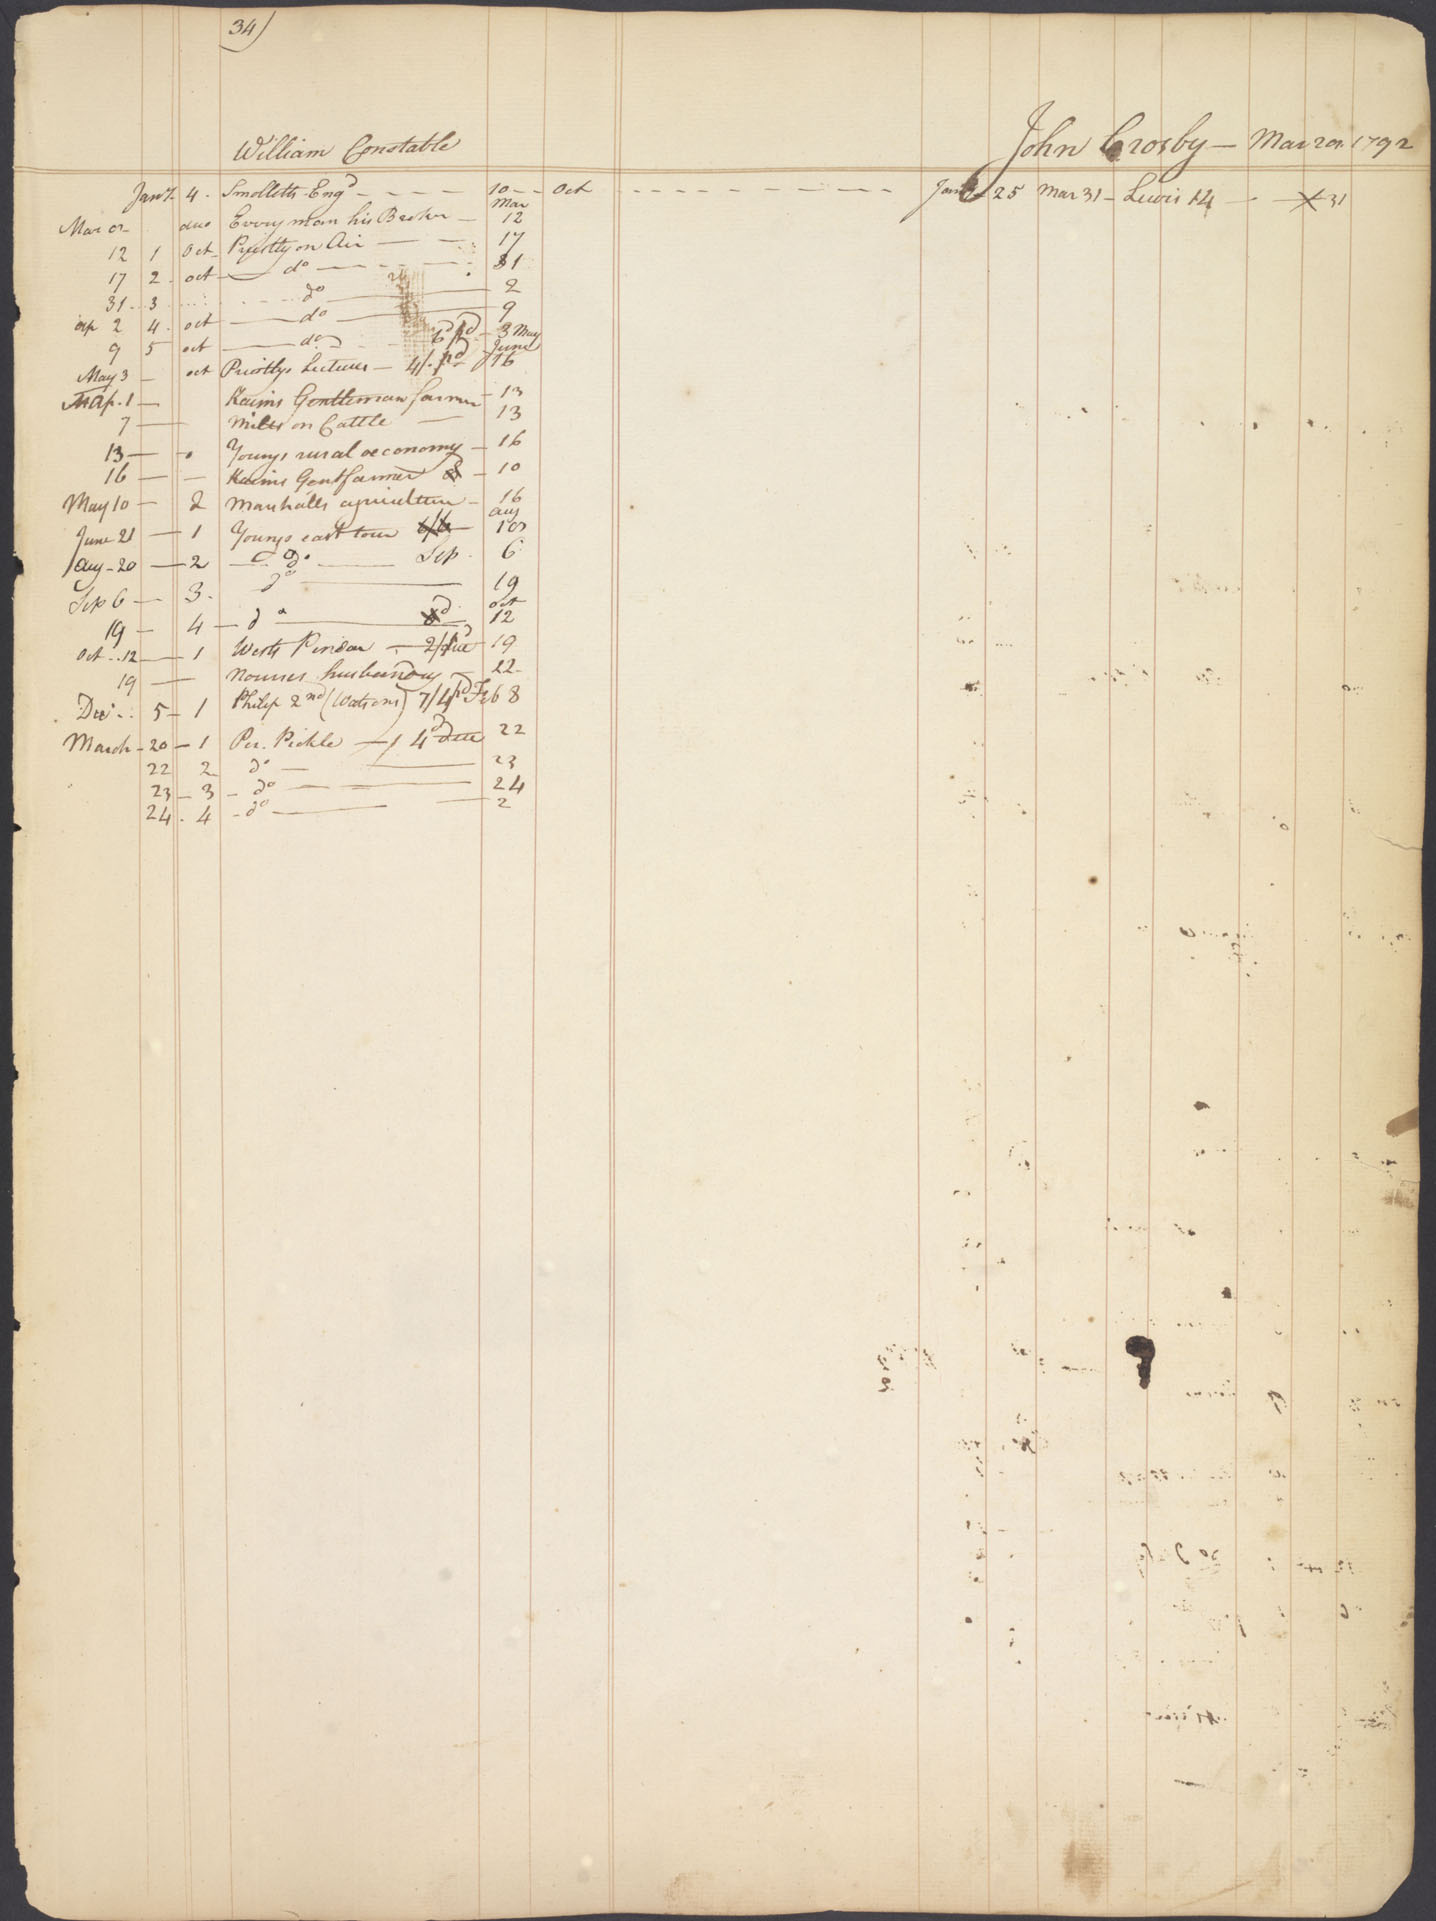 34)
William Constable
John Crosby — Mar 20. 1792
Jany. 4. Smolletts Engd — — — — 10 — — Oct
Jan 25 Mar 31 — Lewis 14 — — X 31
Mar
Mar due Every man his Broker — 12
12 1 Oct Priestly on Air — — 17
17 2 oct — do — — — 31
31 3 do — 2
ap 2 4. oct — do — 9
9 5 oct — do — 6d pd — 3 May
June
May 3 — oct Priestlys Lectures — 4/. pd 16
Ap. 1 — Kaims Gentleman farmer — 13
7 — Mills on Cattle — 13
13 — Youngs rural oeconomy — 16
16 — — Kaims Gentfarmer — 10
May 10 — 2 Marshalls agriculture — 16
aug
June 21 — 1 Youngs east tour 6/6 — 10
Aug - 20 — 2 — do — Sep 6
Sep 6 — 3. do — 19
oct
19 — 4 — do — 12
Oct .. 12 — 1 Wests Pindar — 2/ — 19
19 — Nourses husbandry — 22
Decr .. 5 — 1 Philip 2nd (Watsons) 7/4 pd Feb 8
March - 20 — 1 Per. Pickle — 22
22 2 do — 23
23 — 3 — do — 24
24 . 4 - do — 2